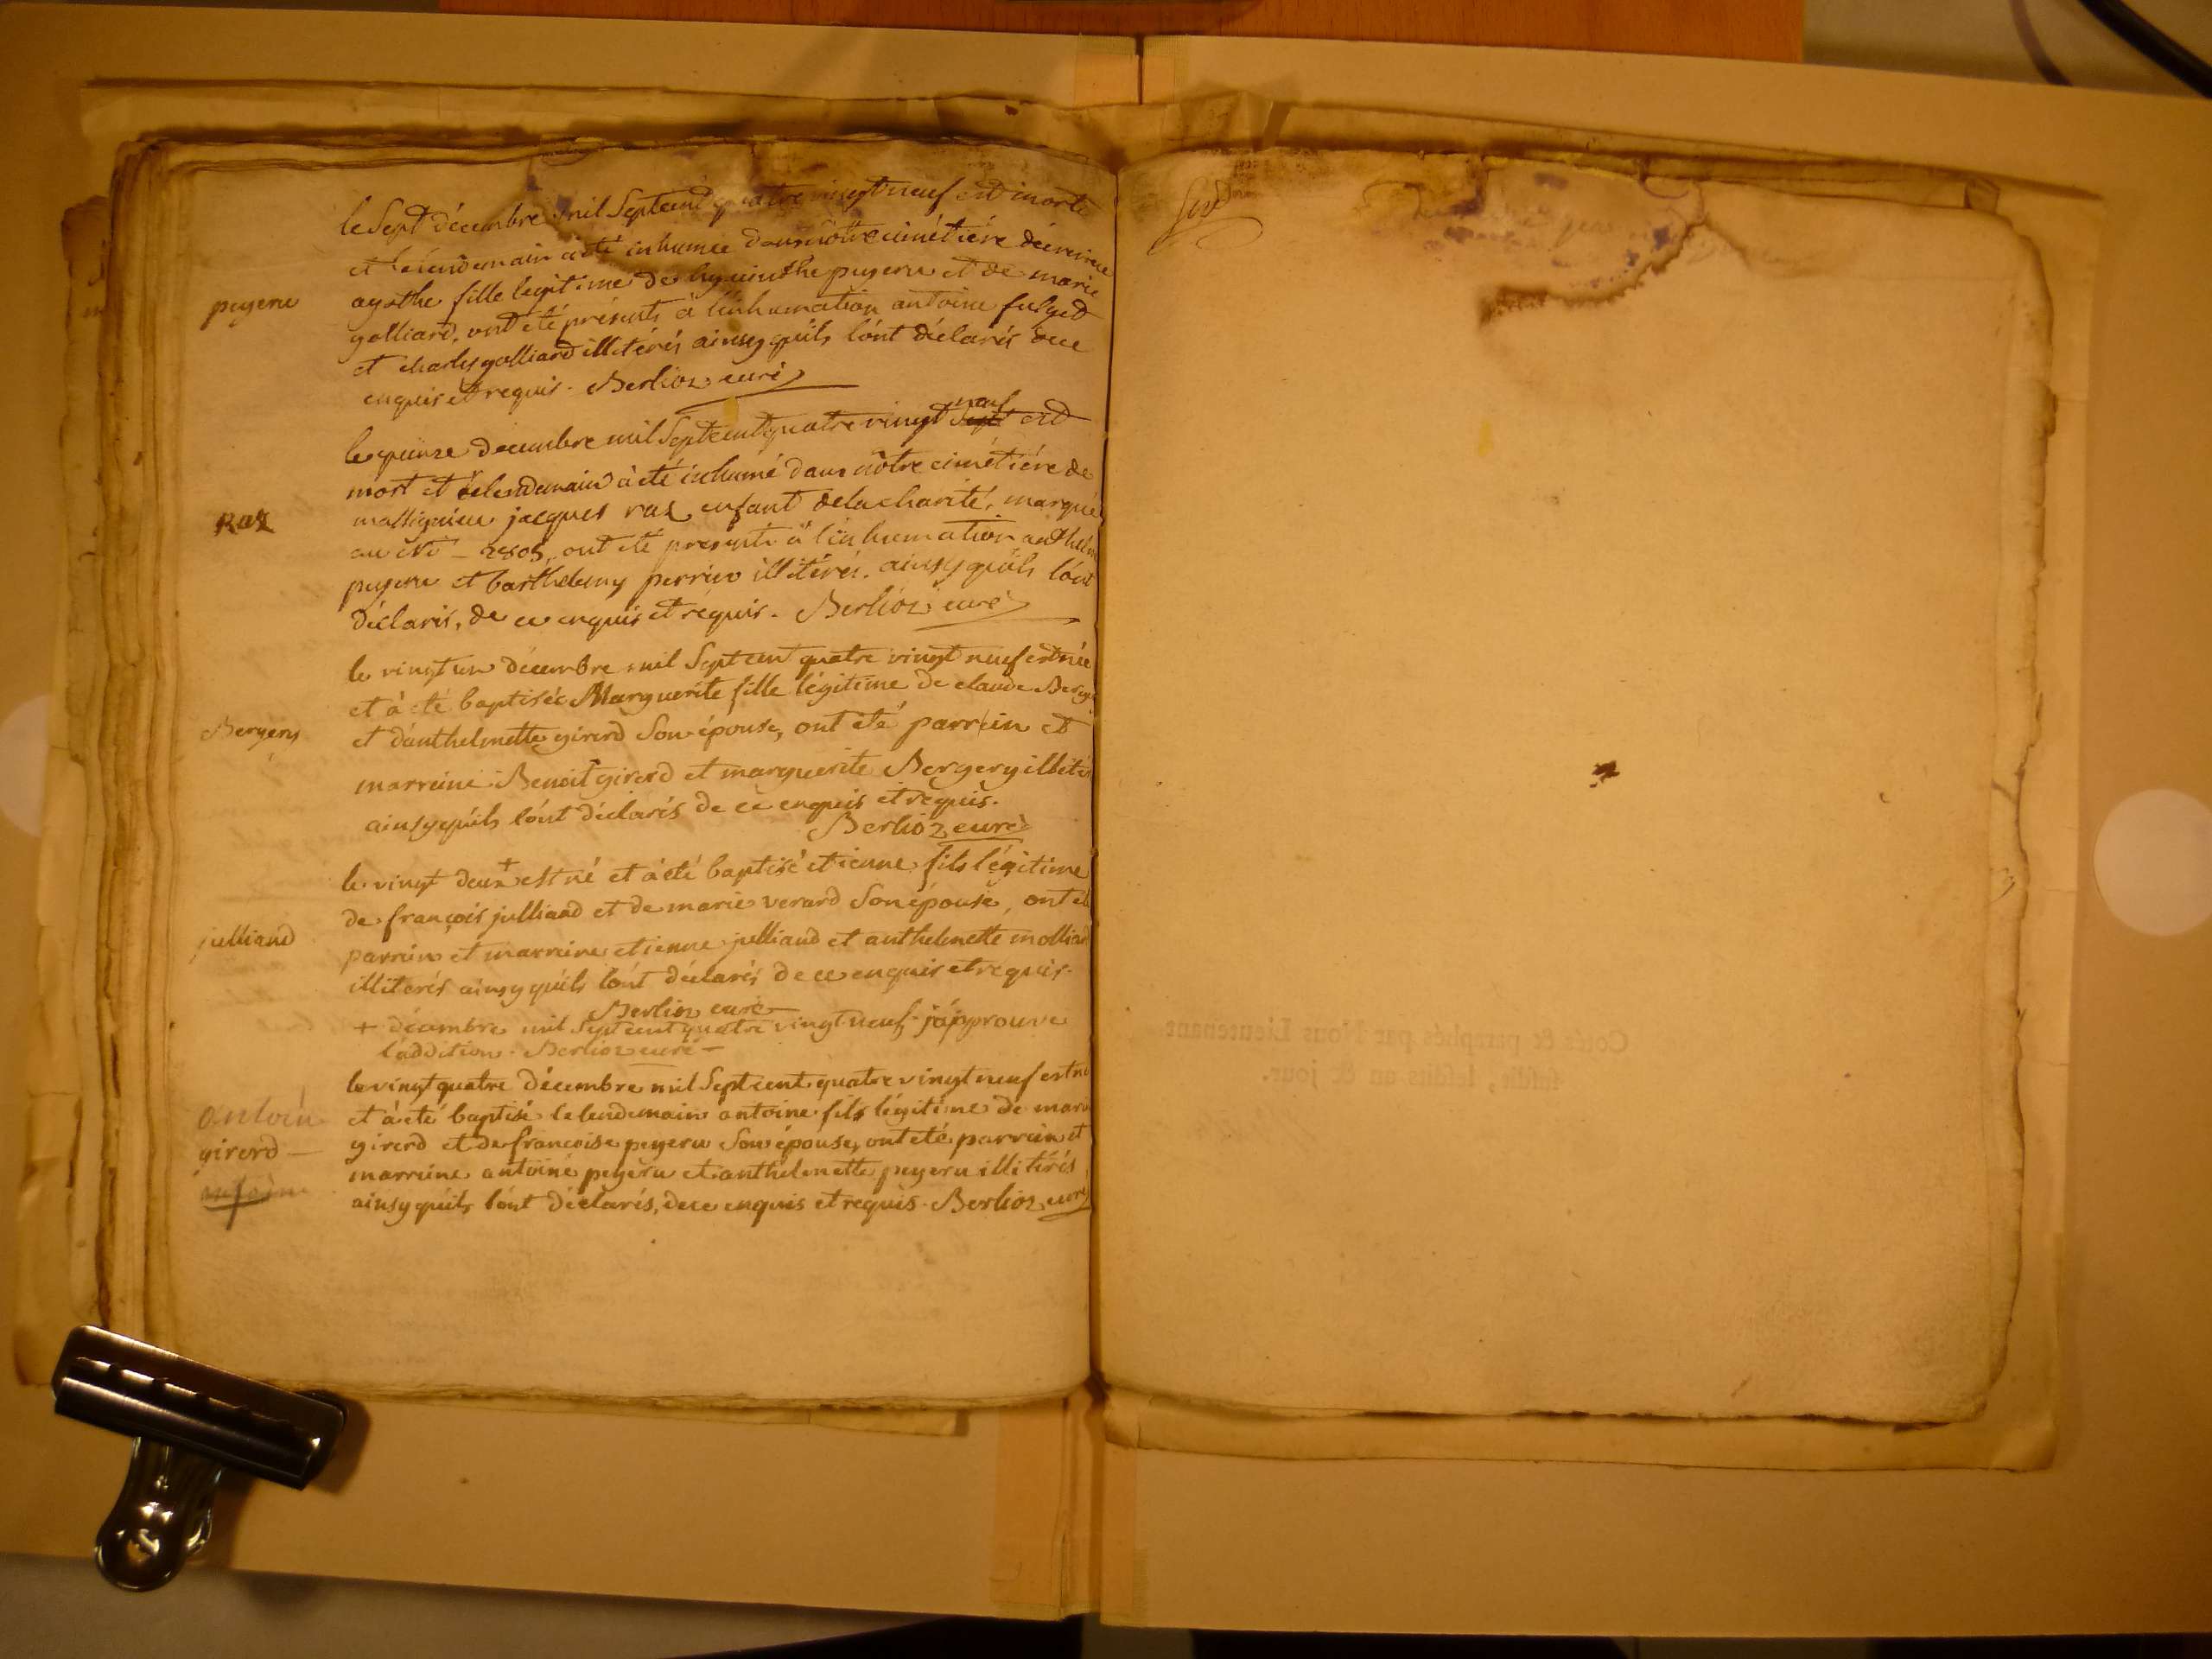 le Sept décembre mil Septcent quatre vingt neuf est morte
et le lendemain a été inhumée dans nôtre cimétiére de
peyeru
agathe fille légitime de hyacinthe peyeru et de marie
golliard, ont été présents à l'inhumation antoine
et charles golliard illitérés ainsy qu'ils l'ont déclarés de ce
enquis et requis. Berlioz curé
le quinze decembre mil Septcent quatre vingt Sept neuf est
mort et le lendemain à été inhumé dans nôtre cimétiére de
Rax
jacques rax enfant de la charité, marqué
au N° - 2805, ont été présents à l'inhumation anthelm
peyeru et barthelemy perrin illitérés. ainsy qu'ils l'ont
déclarés, de ce enquis et requis. Berlioz curé
le vingt un décembre mil Septcent quatre vingt neuf est née
et à été baptisée Marguerite fille légitime de claude Berge
Bergery
et d'anthelmette girerd Son épouse, ont été parrein et
marreine Benoit girerd et marguerite Bergery illité
ainsy qu'ils l'ont déclarés de ce enquis et requis.
Berlioz curé
le vingt deux + est né et à été baptisé etienne fils légitime
de françois julliand et de marie verard Son épouse, ont été
julliand
parrein et marreine etienne julliand et anthelmette molliard
illitérés ainsy qu'ils l'ont déclarés de ce enquis et requis.
Berlioz curé
+ décembre mil Septcent quatre vingt neuf. j'approuve
l'addition. Berlioz curé
le vingt quatre décembre mil Septcent quatre vingt neuf est né
antoin
et à été baptisé le lendemain antoine fils légitime de mari
girerd
girerd et de francoise peyeru Son épouse, ont été parrein et
marreine antoine peyeru et anthelmette peyeru illitérés
ainsy qu'ils l'ont déclarés, de ce enquis et requis. Berlioz curé
Cottés & paraphés par Nous Lieutenant
susdit, lesdits an & jour.